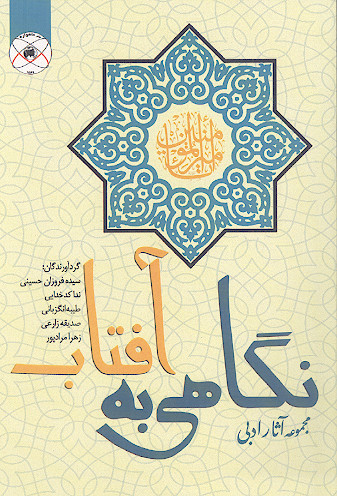 گردآورندگان:
سیده فروزان حسینی
ندا کدخدایی
طیبه انگزبانی
صدیقه زارعی
زهرا مرادپور
نگاهی به آفتاب
مجموعه آثار ادبی